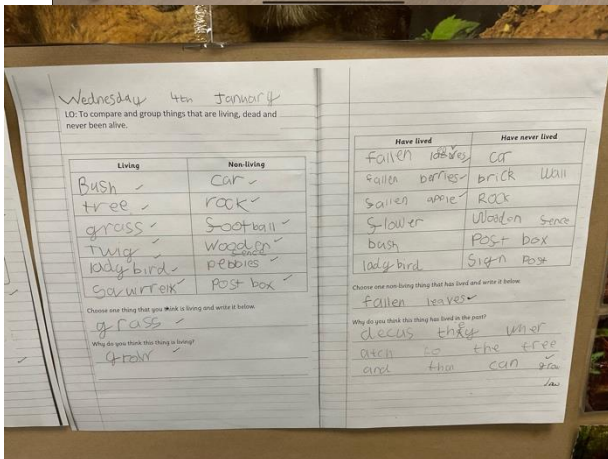 Wednesday 4th January
LO: To compare and group things that are living, dead and
never been alive.
Living Non-living
Bush car
tree rock
grass football
Twig wooden fence
ladybird pebbles
Sqwirrelx Post box
Choose one thing that you think is living and write it below.
grass
Why do you think this thing is living?
grow
Have lived Have never lived
Fallen leaves car
fallen berries brick wall
fallen apple Rock
flower Wooden fence
bush Post box
ladybird Sign Post
Choose one non-living thing that has lived and write it below.
fallen leaves
Why do you think this thing has lived in the past?
decus they wher
atch to the tree
and thai can grow